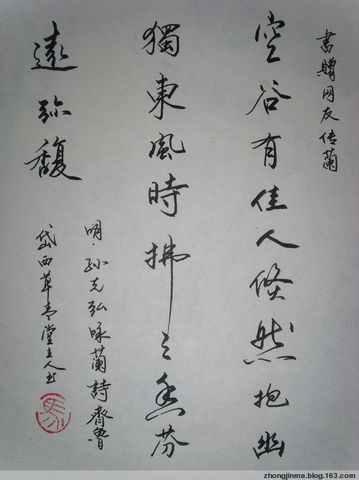 書贈网友佳蘭
空谷有佳人倏然抱幽
獨東風時拂之香芬
遠弥馥
明·孙克弘咏蘭詩齊魯
岱西草亭堂主人书
zhongjinma.blog.163.com